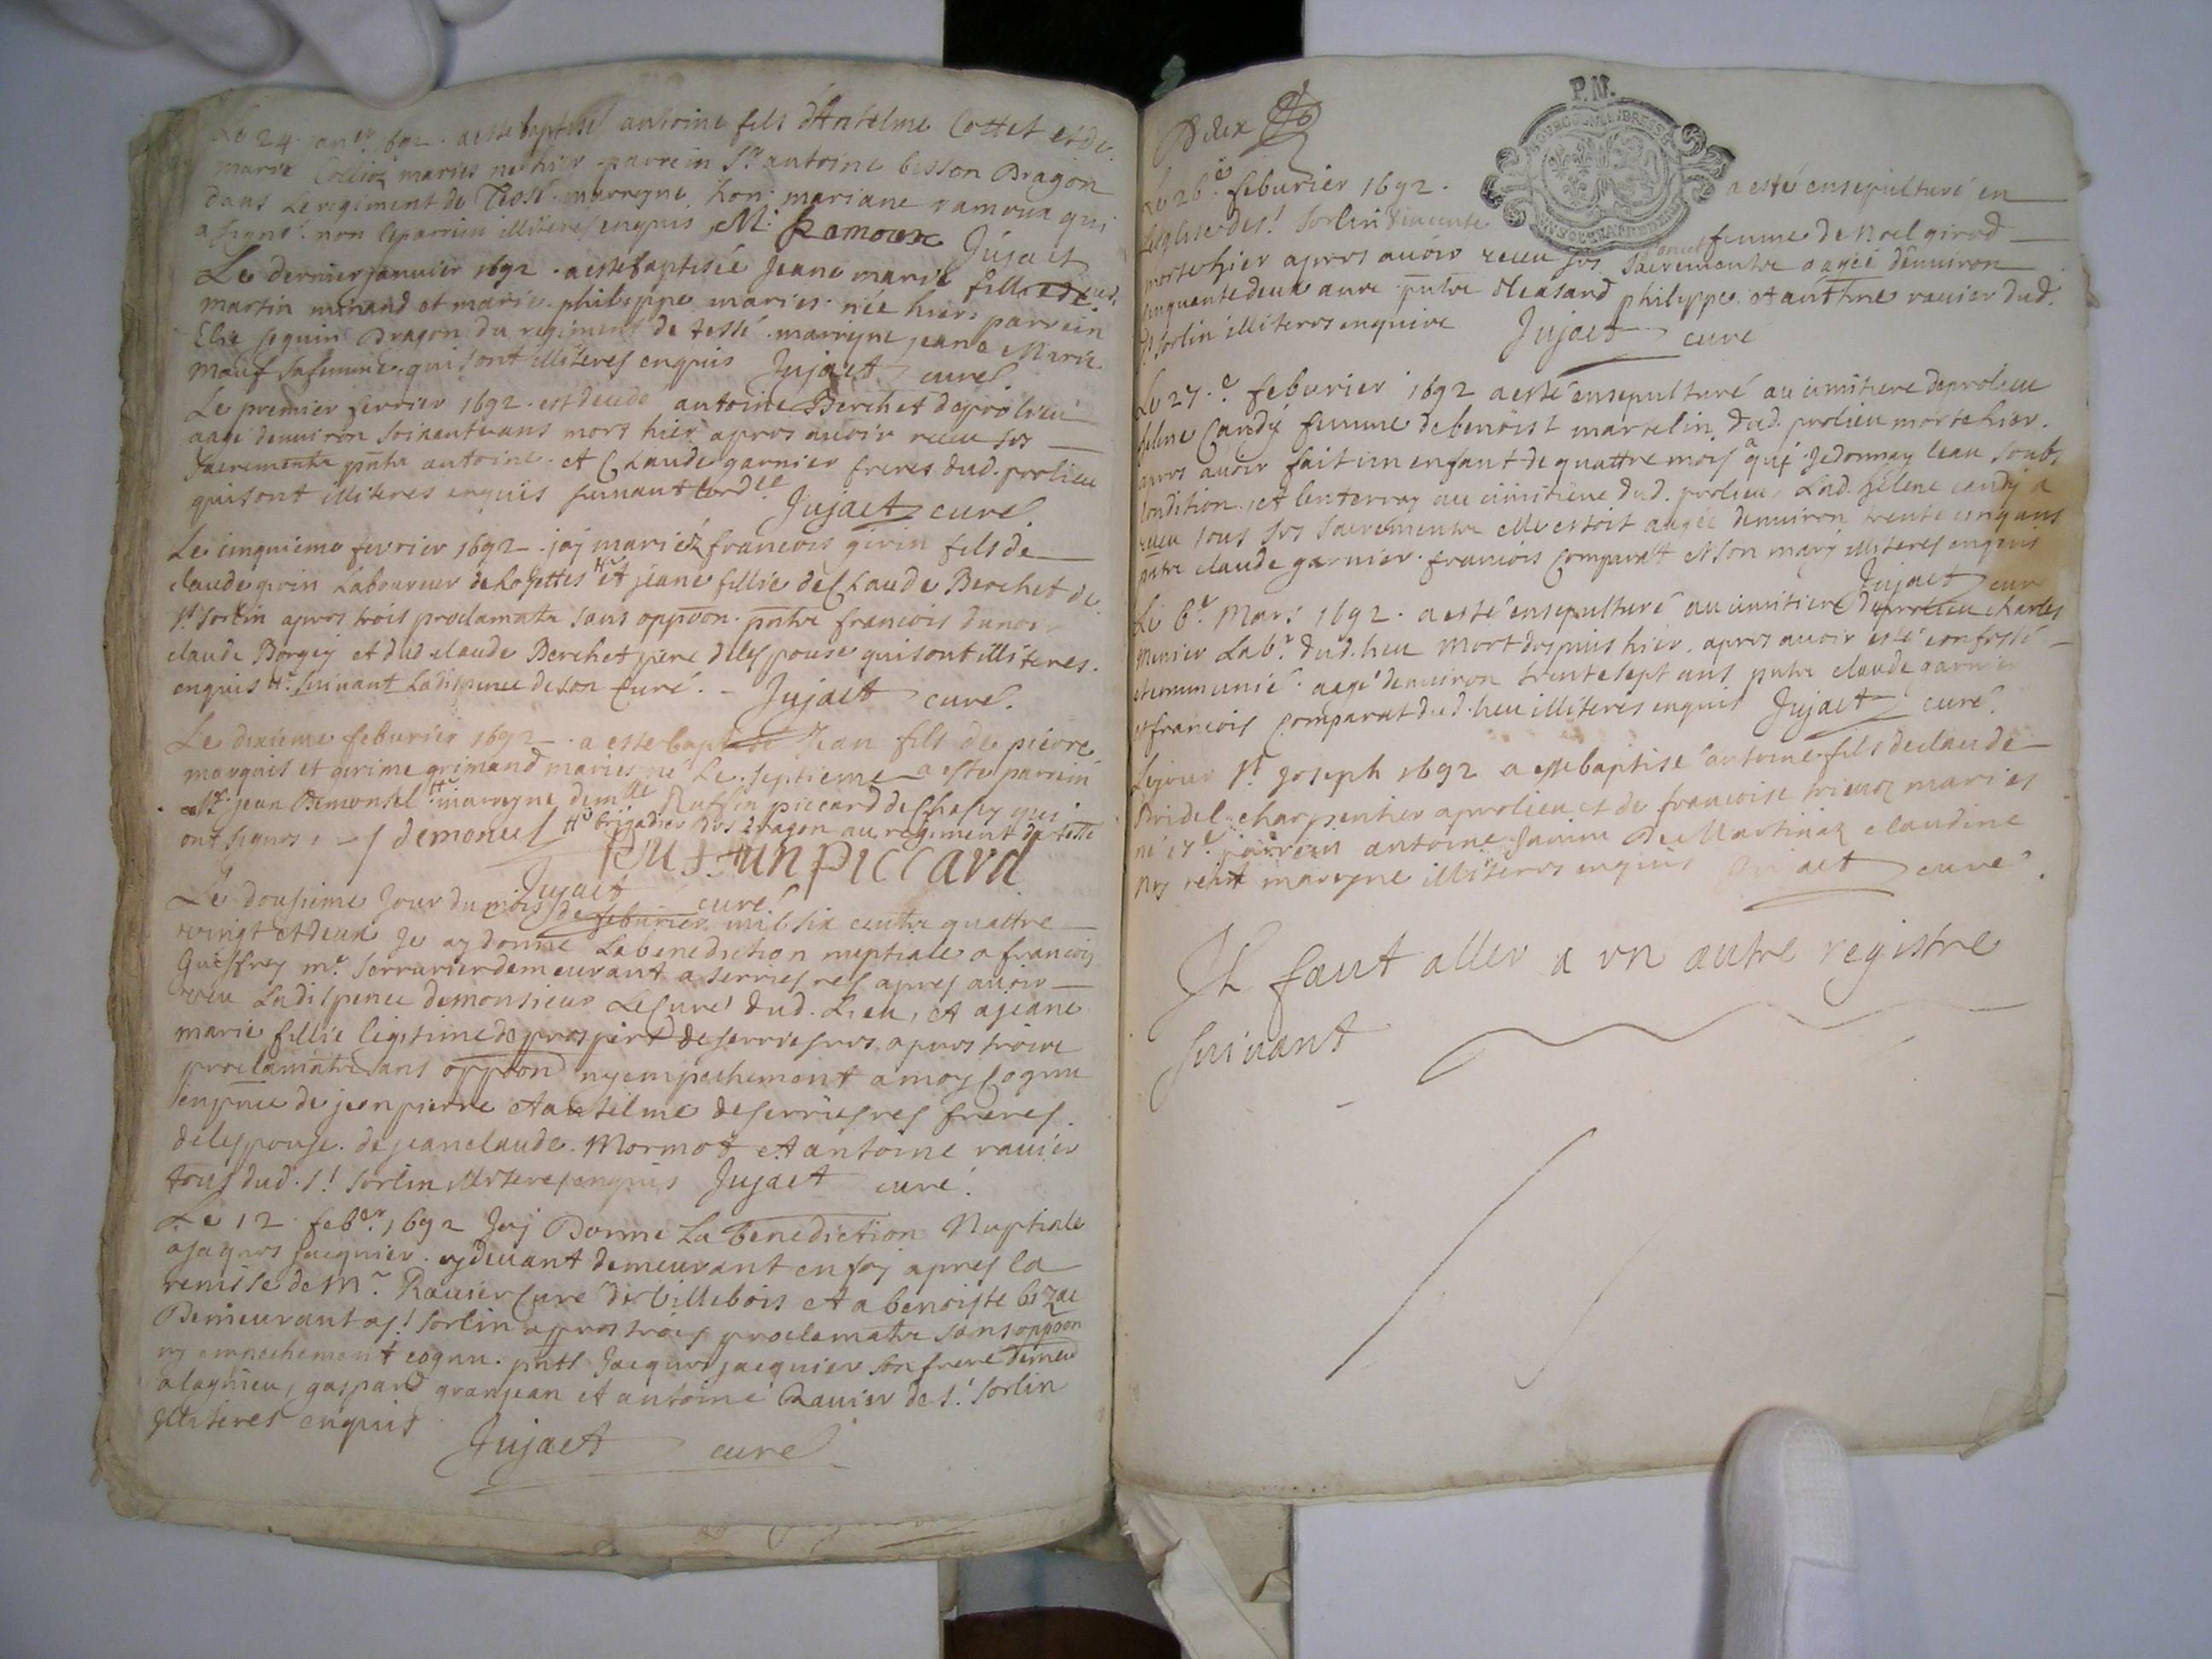 Le 24 jan.er 692 . a este baptisé antoine fils d'Antelme Cottet et de
marie Collioz maries né hier parrein Sr antoine besson Dragon
dans le regiment de marreyne hon. mariane ramoux qui
a signé non leparrein illiteres enquis M: Ramoux Jujact
Le dernier januier 1692 . a este baptisée Jeane marie fille de
martin minand et marie philippe maries née hier parrein
Elie seguin Dragon du regiment de tessé marreyne jeane Marie
Mauf sa femme qui sont illiteres enquis Jujact curé
Le premier fevrier 1692 . est decede antoine Berchet de prolieu
aagé denuiron soixante ans mort hier apres auoir receu ses
sacrements pnts antoine et Claude garnier freres dud. prolieu
qui sont illiteres enquis suiuant lord.ce Jujact curé
Le cinquieme fevrier 1692 . jay mariéz francois girin fils de
claude girin Laboureur de Et jeane fillie de Claude Berchet de
St Sorlin apres trois proclamats sans oppoon pnts francois
claude Borgey et dud claude Berchet pere de lespouse qui sont illiteres
enquis suivant la dispence de son Curé . Jujact curé.
Le dixieme feburier 1692 . a este baptisé Jean fils de pierre
marquis et grimand maries né Le septieme a este parrein
Sr. jean Demonsel marreyne dem.lle Ruffin piccard de qui
ont signes . J demonul brigadier des dragon au regiment de tesse
Ruffin piccard
Jujact curé
Le dousieme Jour du mois de feburier mil six cents quattre
vingt et deux Je ay donné La benediction nuptiale a francois
Guiffrey me. serrurier demeurant a serrieres apres auoir
veu La dispence de monsieur Le Curé dud. Lieu, et a jeane
marie fillie legitime de prospert de serrieres apres troix
proclamats sans oppoon ny empechement a moy Cognu
en pnce de jean pierre et antelme de serrieres freres
de lespouse . de jean claude Mormot et antoine rauier
tous dud. St Sorlin illiteres enquis Jujact curé.
Le 12 feb.er 1692 Jay Donné La benediction Nuptiale
a jaques jacquier cy deuant demeurant en foy apres la
remisse de Mr. Rauier Curé de Villebois et a benoiste bizac
Demeurant a St Sorlin apres trois proclamats sans oppoon
ny empechement cognu . pnts Jacques jacquier son frere demeu
a lagnieu, gaspard granjean et antoine Rauier de St Sorlin
illiteres enquis
Jujact curé
Deux
P.M.
Le 26.e feburier 1692 . a esté ensepulturé en
Leglise de St Sorlin femme de Noel girod
morte hier apres auoir receu ses Sacrements aagée denuiron
cinquante deux ans pnts philippe et rauier dud.
St Sorlin illiteres enquis Jujact curé
Le 27.e feburier 1692 a esté ensepulturé au cimitiere de prolieu
helene Candy femme de benoist martelin dud. prolieu morte hier
apres auoir fait un enfant de quattre mois a qui Je donnay leau soubs
condition, et lenterray au cimitiere dud. prolieu, Lad. helene candy a
receu tous ses sacrements elle estoit aagée denuiron trente cinq ans
pnts claude garnier francois Comparat et son mary illiteres enquis
Jujact cur
Le 6.e Mars 1692 . a esté ensepulturé au cimitiere de prolieu charles
Menier Lab.r dud. lieu mort depuis hier, apres auoir esté confessé
et communié aagé denuiron trente sept ans pnts claude garnier
et francois Comparat dud. lieu illiteres enquis Jujact curé.
Le jour St Joseph 1692 a este baptisé antoine fils de claude
Bridel charpentier a prolieu et de francoise maries
né 17.e parrein antoine De Martinaz claudine
marreyne illiteres enquis Jujact curé.
Il faut aller a vn autre registre
suivant